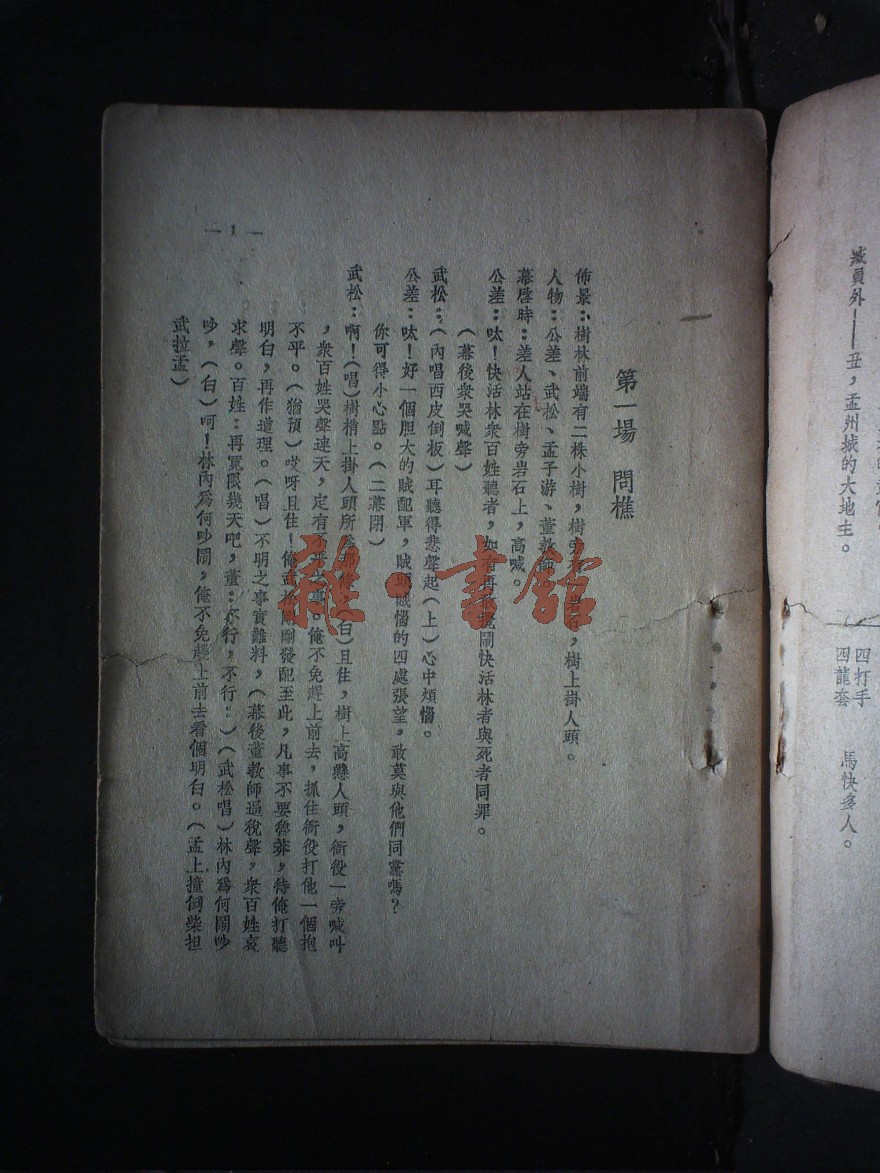 臧員外——丑，孟州城的大地主。
四打手
四龍套
馬快多人。
第一場　問樵
佈景：樹林前端有二株小樹，樹旁，樹上掛人頭。
人物：公差、武松、孟子游、董教師
幕啓時：差人站在樹旁岩石上，高喊。
公差：呔！快活林衆百姓聽者，如有再鬧快活林者與死者同罪。
（幕後衆哭喊聲）
武松：（內唱西皮倒板）耳聽得悲聲起（上）心中煩惱。
公差：呔！好一個胆大的賊配軍，賊頭賊惱的四處張望，敢莫與他們同黨嗎？
你可得小心點。（二幕閉）
武松：啊！（唱）樹梢上掛人頭所（白）且住，樹上高懸人頭，衙役一旁喊叫
，衆百姓哭聲連天，定有不平之事。俺不免趕上前去，抓住衙役打他一個抱
不平。（猶預）哎呀且住！俺武松剛剛發配至此，凡事不要魯莽，待俺打聽
明白，再作道理。（唱）不明之事實難料，（幕後董教師逼稅聲，衆百姓哀
求聲。百姓：再寬限幾天吧，董：不行，不行：）（武松唱）林內爲何鬧吵
吵，（白）呵！林內爲何吵鬧，俺不免趕上前去看個明白。（孟上撞倒柴担
武拉孟）
— 1 —
雜·書館